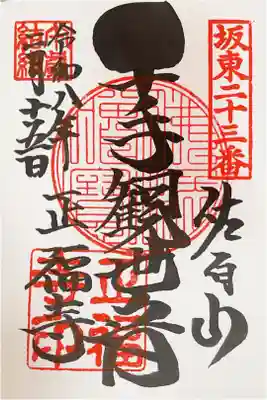 坂東二十三番
佐白山
千手観世音
令和八年
正福寺